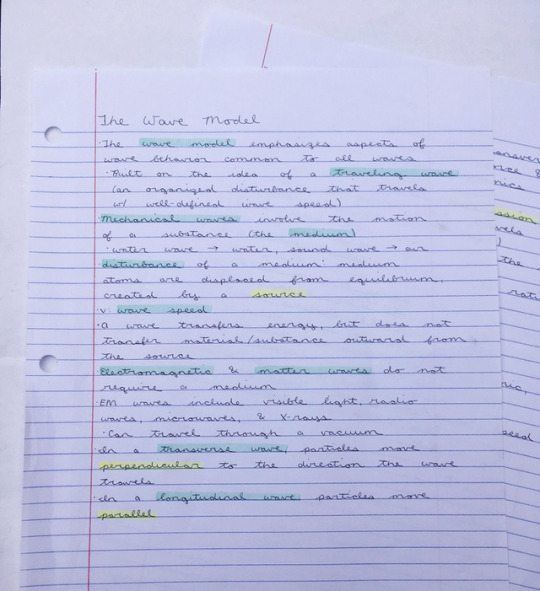 The Wave Model
· The wave model emphasizes aspects of
wave behavior common to all waves
· Built on the idea of a traveling wave
(an organized disturbance that travels
w/ well-defined wave speed)
· Mechanical waves involve the motion
of a substance (the medium)
· water wave → water, sound wave → air
· disturbance of a medium: medium
atoms are displaced from equilibrium,
created by a source
· v: wave speed
· a wave transfers energy, but does not
transfer material/substance outward from
the source
· Electromagnetic & matter waves do not
require a medium
· EM waves include visible light, radio
waves, microwaves, & X-rays
· Can travel through a vacuum
· In a transverse wave, particles move
perpendicular to the direction the wave
travels
· In a longitudinal wave, particles move
parallel
the